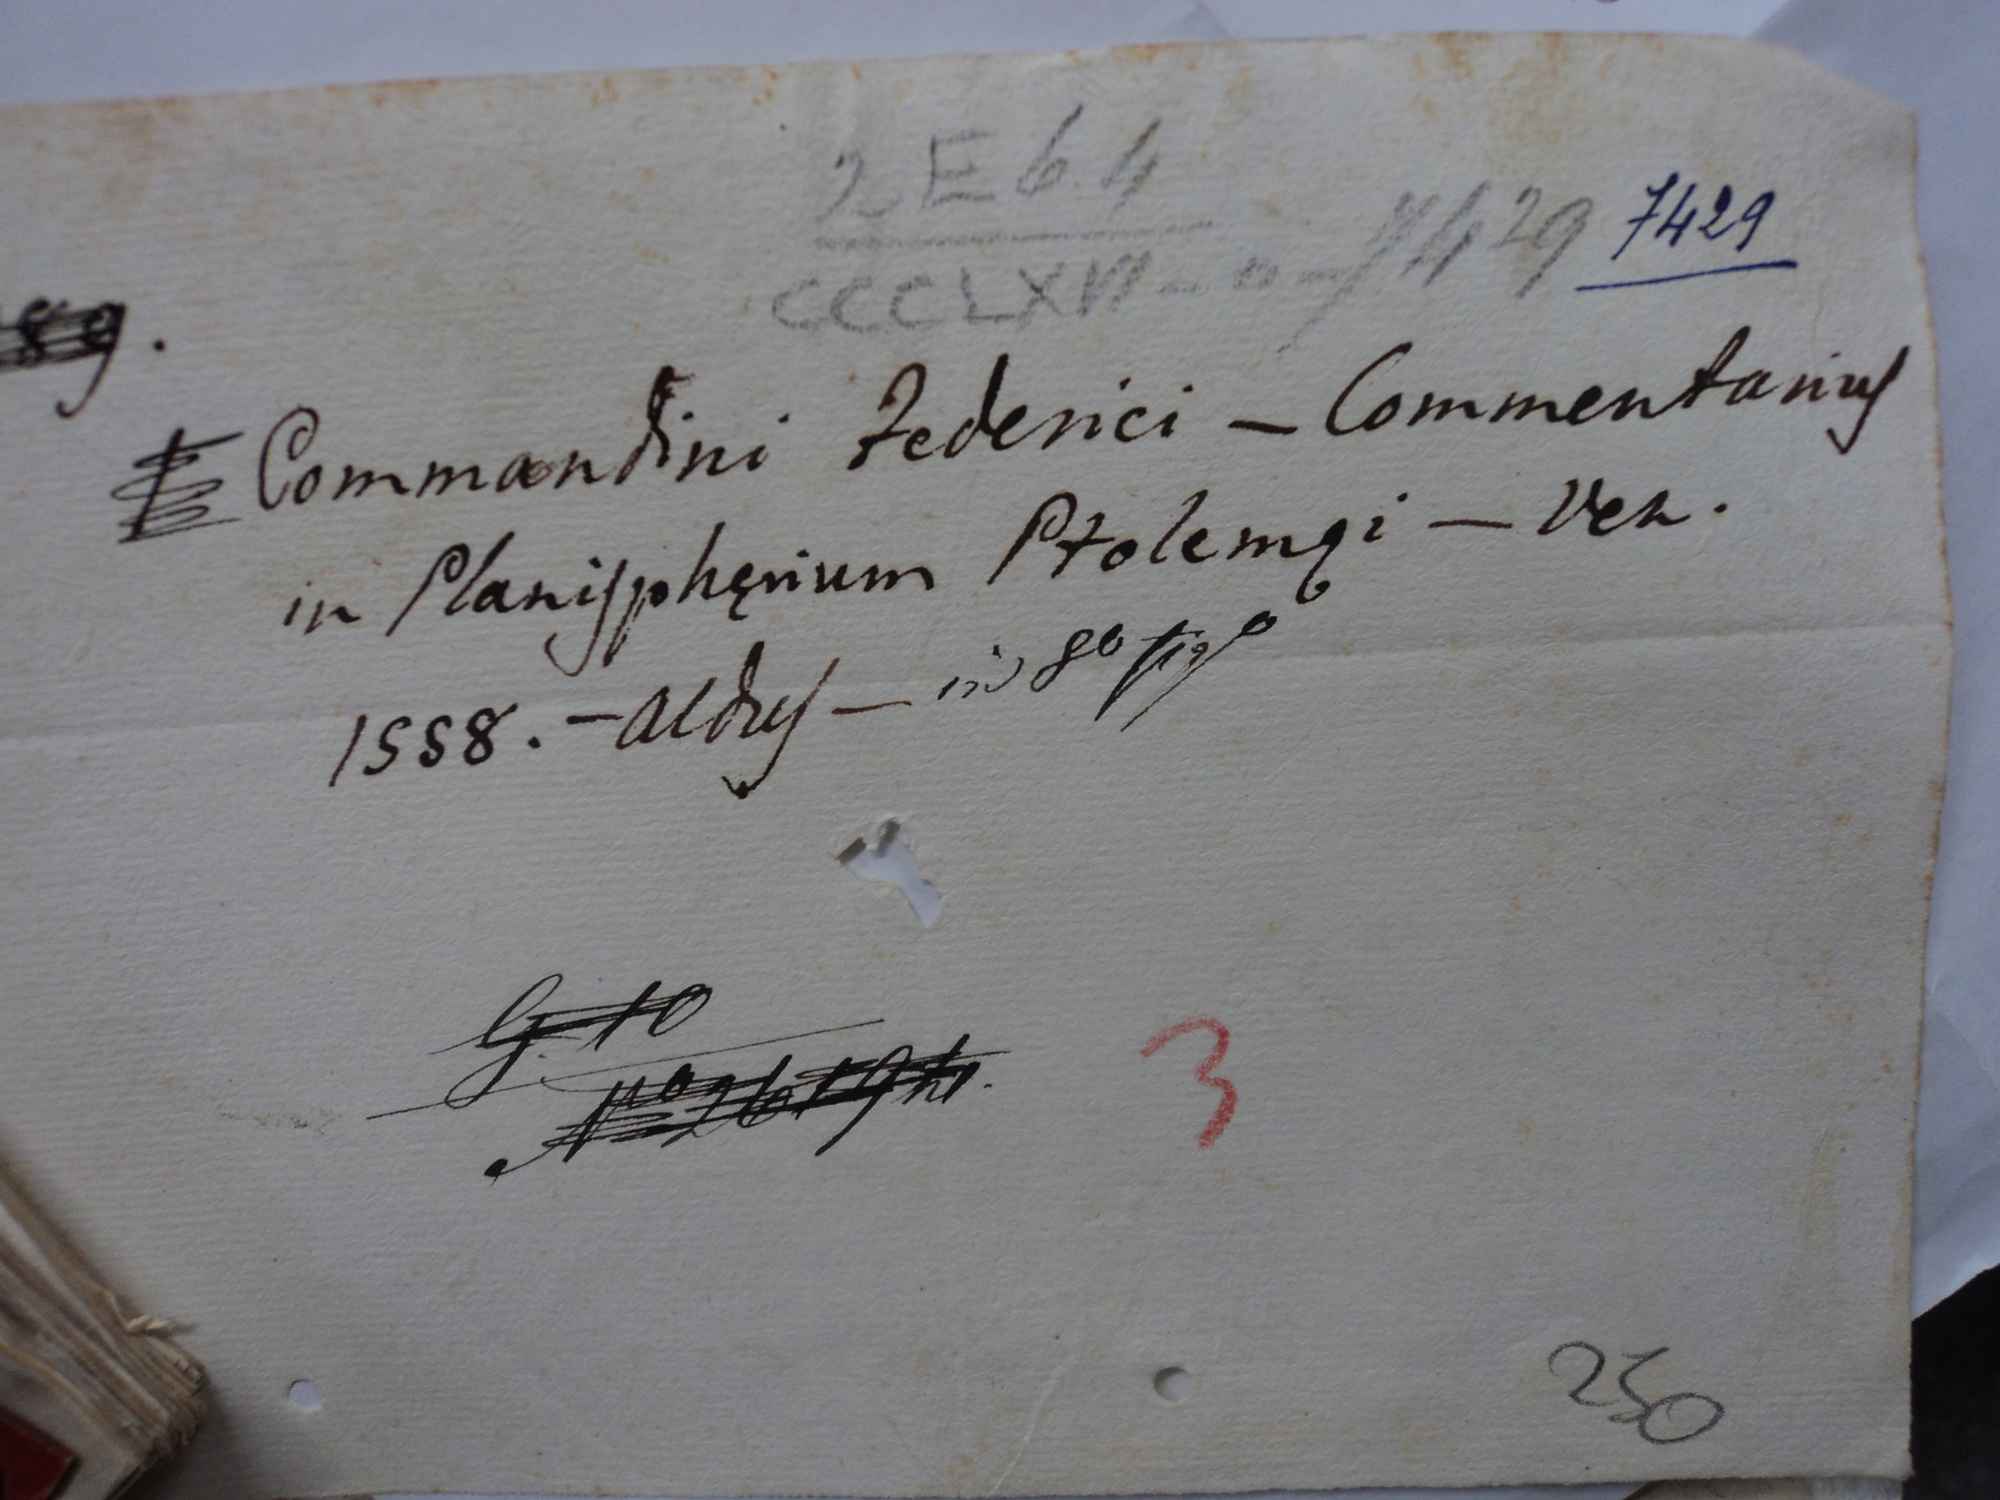 2 E 6 4
CCCLXVI - 0 - 7429 7429
89.
Commandini Federici — Commentarius
in Planisphęrium Ptolemęi — Ven.
1558. — Aldus — in 8º figº
G. 10
Nº 26
3
250